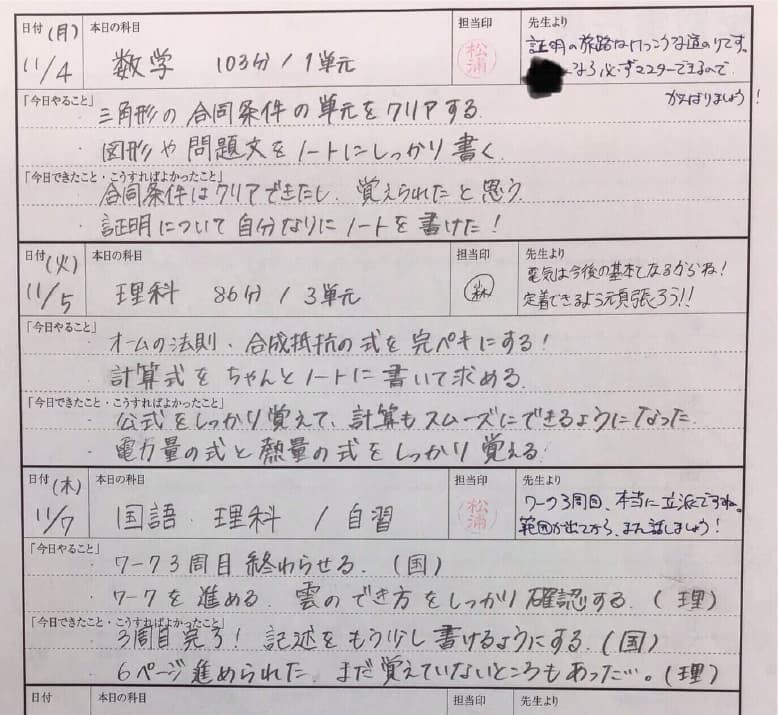 日付 (月) 本日の科目 担当印 先生より
11/4 数学 103分 / 1単元 松浦 証明の旅路はけっこうな道のりです。
なら必ずマスターできるので
がんばりましょう！
「今日やること」
・三角形の合同条件の単元をクリアする
・図形や問題文をノートにしっかり書く
「今日できたこと・こうすればよかったこと」
・合同条件はクリアできたし、覚えられたと思う
・証明について自分なりにノートを書けた！
日付 (火) 本日の科目 担当印 先生より
11/5 理科 86分 / 3単元 電気は今後の基本となるからね！
定着できるよう頑張ろう!!
「今日やること」
・オームの法則・合成抵抗の式を完ペキにする！
・計算式をちゃんとノートに書いて求める
「今日できたこと・こうすればよかったこと」
・公式をしっかり覚えて、計算もスムーズにできるようになった
・電力量の式と熱量の式をしっかり覚える
日付 (木) 本日の科目 担当印 先生より
11/7 国語・理科 / 自習 松浦 ワーク3周目、本当に立派ですね。
範囲が出てから、また話しましょう！
「今日やること」
・ワーク3周目終わらせる (国)
・ワークを進める 雲のでき方をしっかり確認する (理)
「今日できたこと・こうすればよかったこと」
・3周目完了！記述をもう少し書けるようにする (国)
・6ページ進められた、まだ覚えていないところもあった…。(理)
日付 本日の科目 担当印 先生より